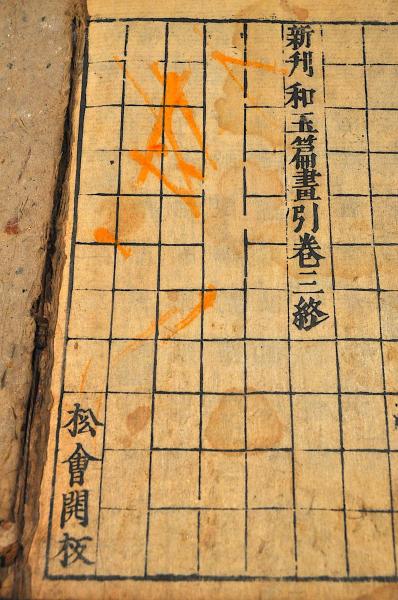 新刋和玉篇畫引卷三終
松會開板